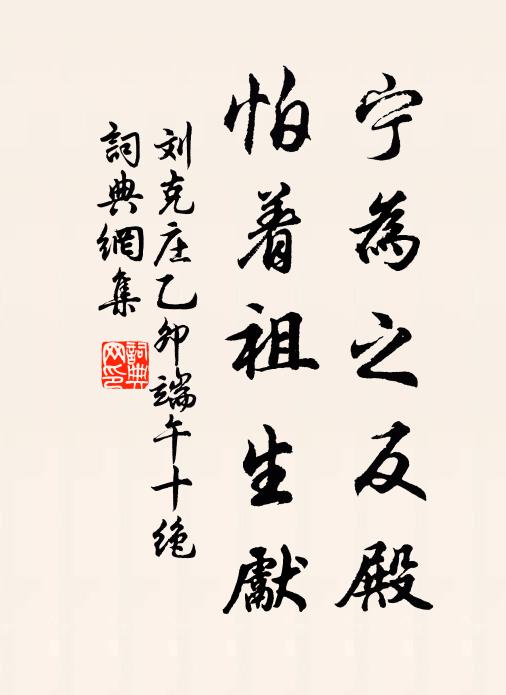 宁為之反殿
怕着祖生獻
刘克庄乙卯端午十绝
詞典網集
詞典网印